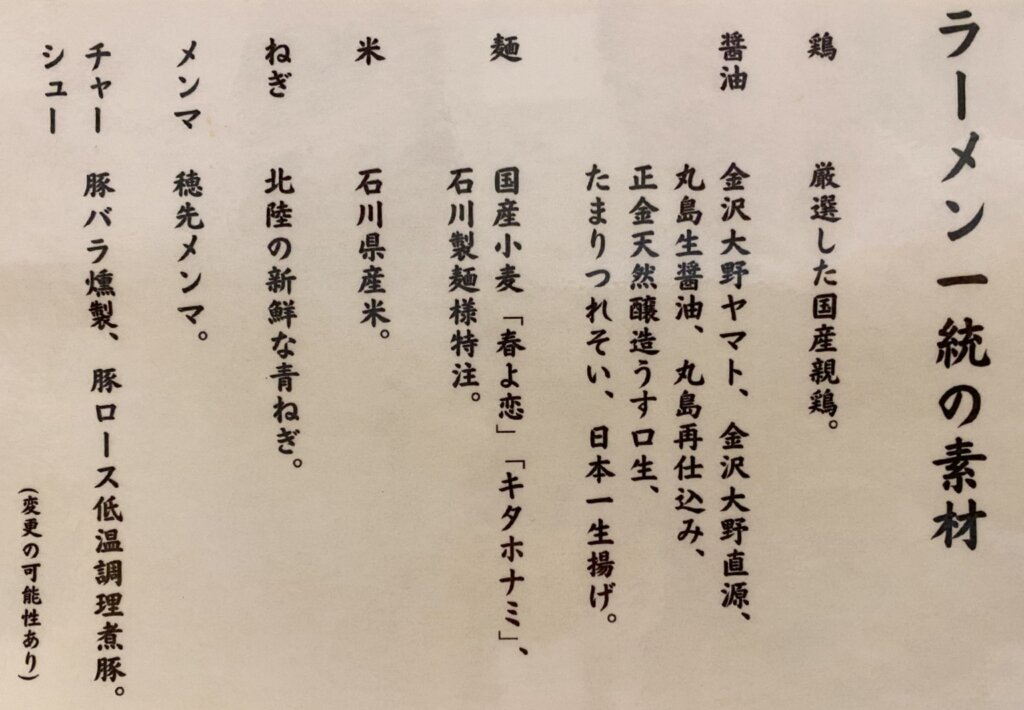 ラーメン一統の素材
鶏　厳選した国産親鶏。
醤油　金沢大野ヤマト、金沢大野直源、
丸島生醤油、丸島再仕込み、
正金天然醸造うす口生、
たまりつれそい、日本一生揚げ。
麺　国産小麦「春よ恋」「キタホナミ」、
石川製麺様特注。
米　石川県産米。
ねぎ　北陸の新鮮な青ねぎ。
メンマ　穂先メンマ。
チャー　豚バラ燻製、豚ロース低温調理煮豚。
シュー
（変更の可能性あり）